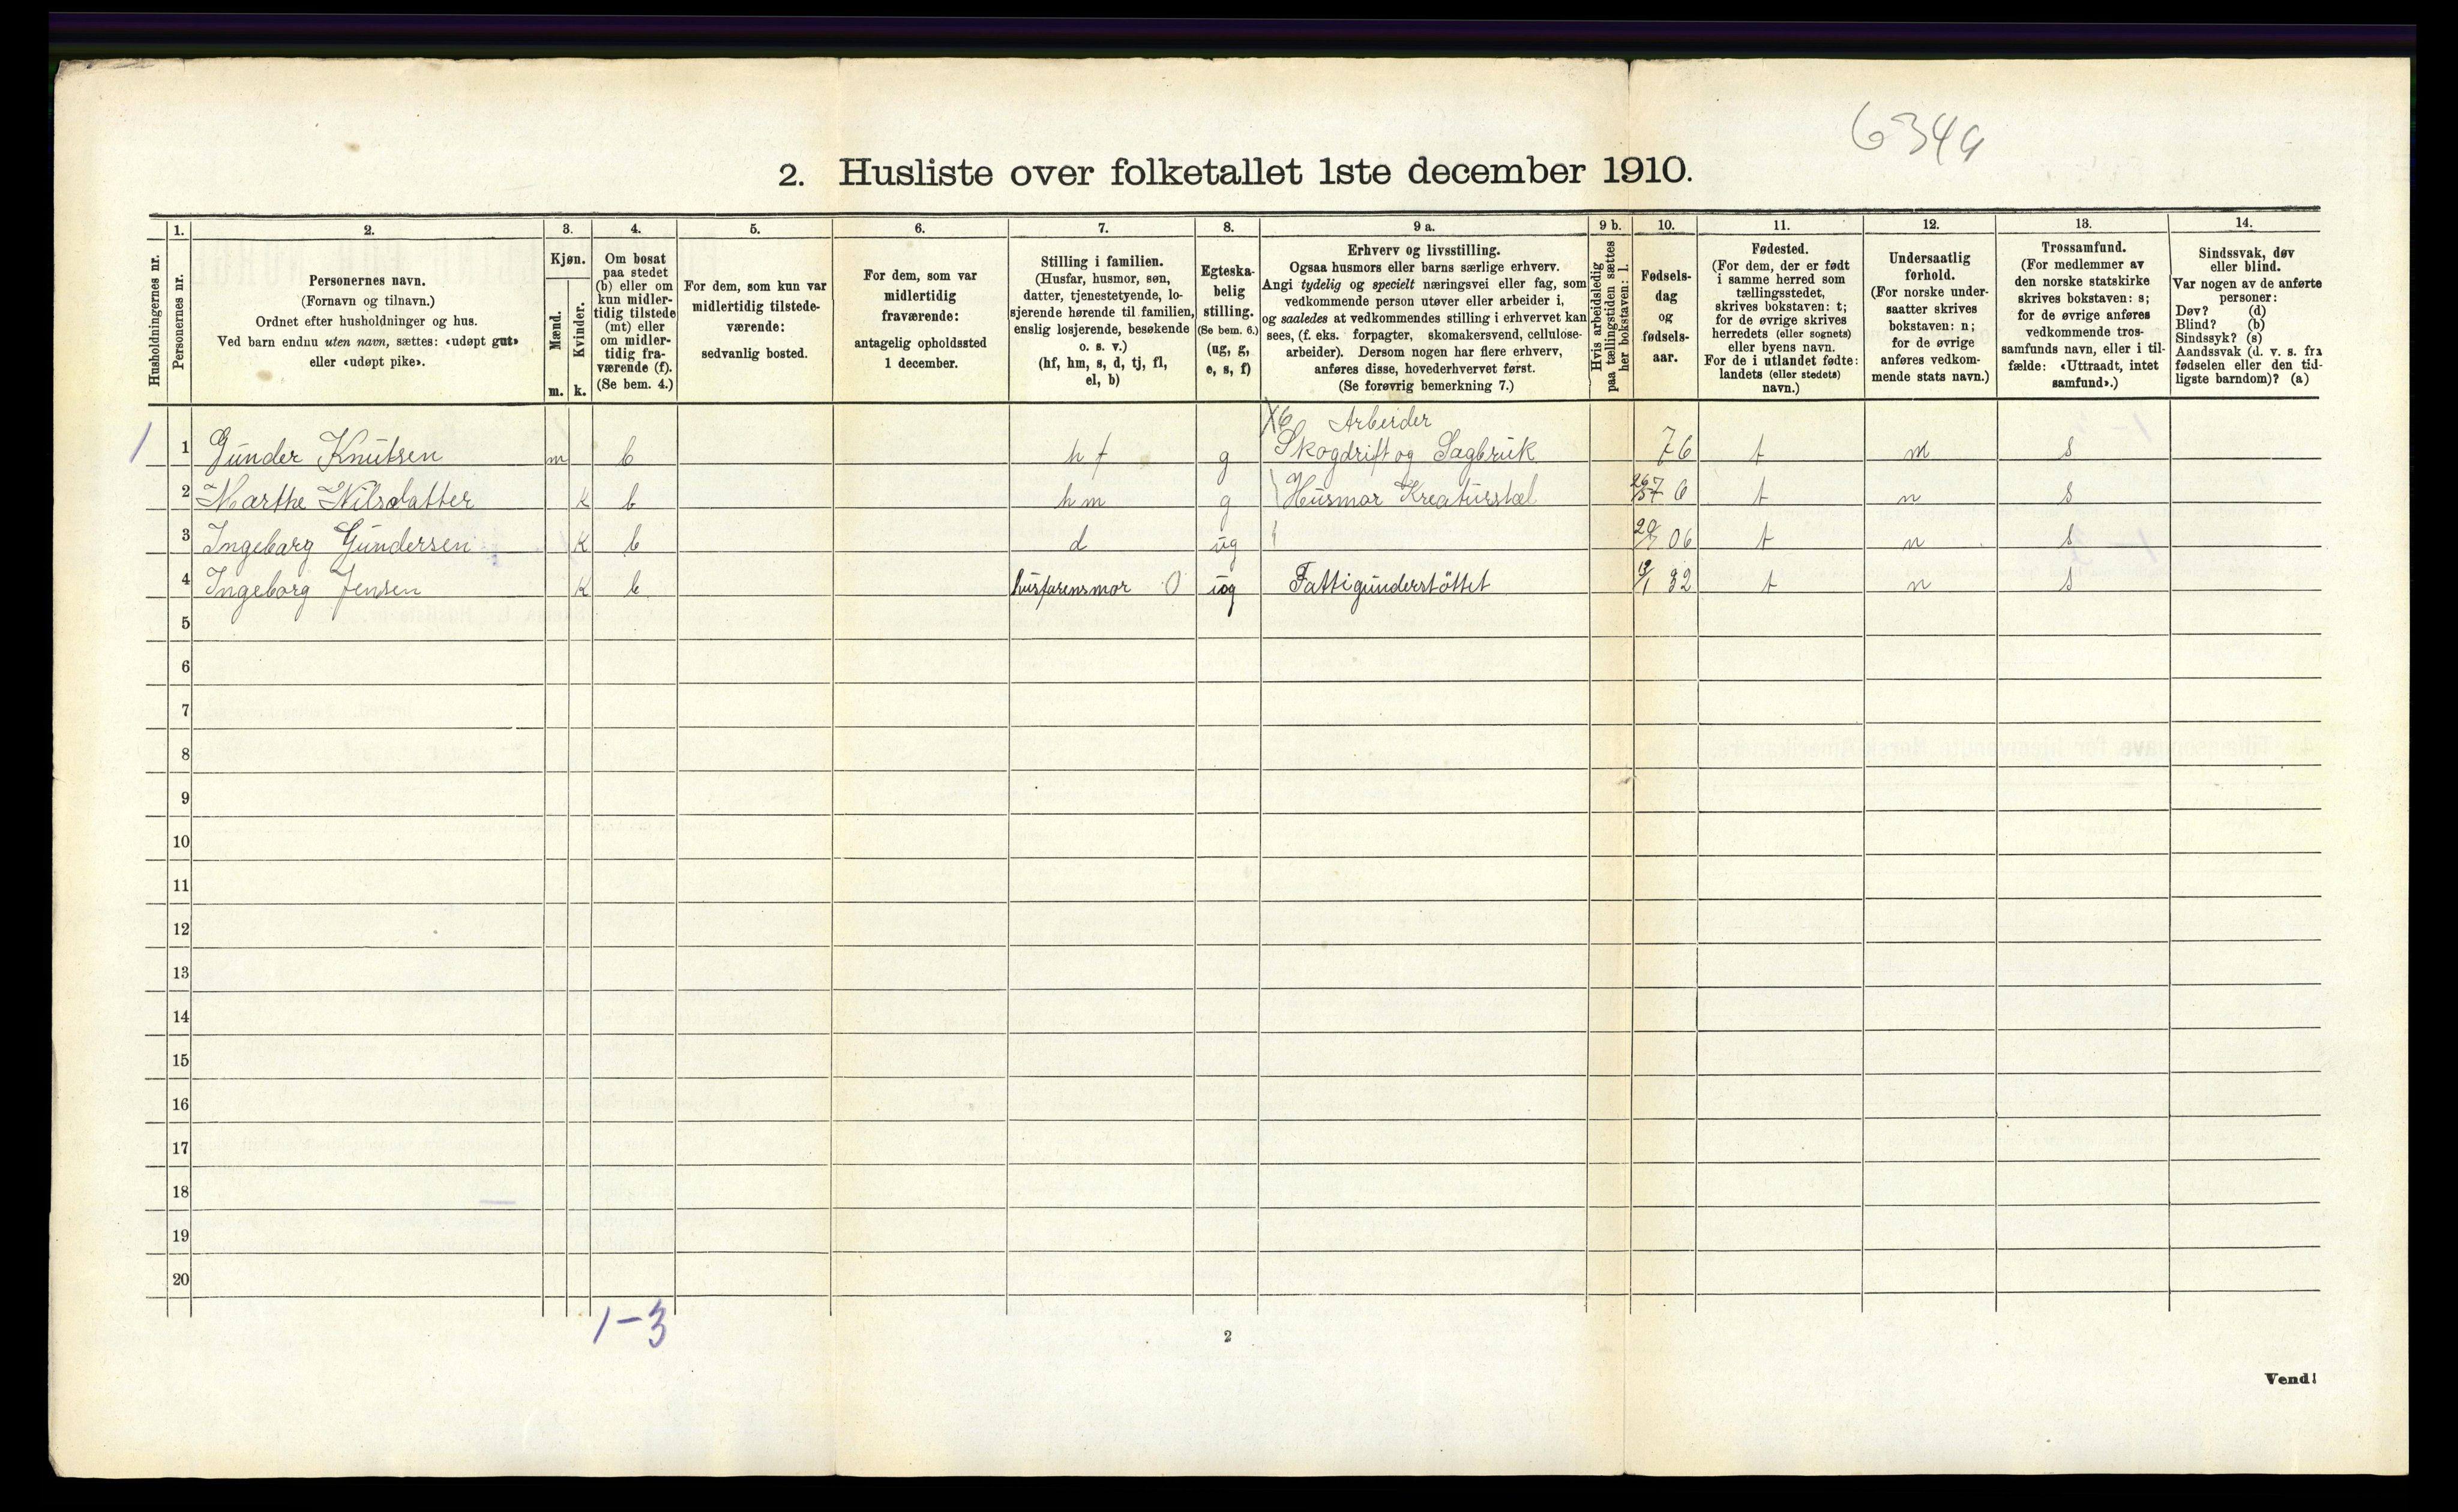 6349
2. Husliste over folketallet 1ste december 1910.
Husholdningernes nr.
1.
Personernes nr.
2.
Personernes navn.
(Fornavn og tilnavn.)
Ordnet efter husholdninger og hus.
Ved barn endnu uten navn, sættes: «udøpt gut»
eller «udøpt pike».
3.
Kjøn.
Mænd.
m.
Kvinder.
k.
4.
Om bosat
paa stedet
(b) eller om
kun midler-
tidig tilstede
(mt) eller
om midler-
tidig fra-
værende (f).
(Se bem. 4.)
5.
For dem, som kun var
midlertidig tilstede-
værende:
sedvanlig bosted.
6.
For dem, som var
midlertidig
fraværende:
antagelig opholdssted
1 december.
7.
Stilling i familien.
(Husfar, husmor, søn,
datter, tjenestetyende, lo-
sjerende hørende til familien,
enslig losjerende, besøkende
o. s. v.)
(hf, hm, s, d, tj, fl,
el, b)
8.
Egteska-
belig
stilling.
(Se bem. 6.)
(ug, g,
e, s, f)
9 a.
Erhverv og livsstilling.
Ogsaa husmors eller barns særlige erhverv.
Angi tydelig og specielt næringsvei eller fag, som
vedkommende person utøver eller arbeider i,
og saaledes at vedkommendes stilling i erhvervet kan
sees, (f. eks. forpagter, skomakersvend, cellulose-
arbeider). Dersom nogen har flere erhverv,
anføres disse, hovederhvervet først.
(Se forøvrig bemerkning 7.)
9 b.
Hvis arbeidsledig
paa tællingstiden sættes
her bokstaven: l.
10.
Fødsels-
dag
og
fødsels-
aar.
11.
Fødested.
(For dem, der er født
i samme herred som
tællingsstedet,
skrives bokstaven: t;
for de øvrige skrives
herredets (eller sognets)
eller byens navn.
For de i utlandet fødte:
landets (eller stedets)
navn.)
12.
Undersaatlig
forhold.
(For norske under-
saatter skrives
bokstaven: n;
for de øvrige
anføres vedkom-
mende stats navn.)
13.
Trossamfund.
(For medlemmer av
den norske statskirke
skrives bokstaven: s;
for de øvrige anføres
vedkommende tros-
samfunds navn, eller i til-
fælde: «Uttraadt, intet
samfund».)
14.
Sindssvak, døv
eller blind.
Var nogen av de anførte
personer:
Døv? (d)
Blind? (b)
Sindssyk? (s)
Aandssvak (d. v. s. fra
fødselen eller den tid-
ligste barndom)? (a)
X6 Arbeider
1 1 Gunder Knutsen m b hf g Skogdrift og Sagbruk 76 t n s
2 Marthe Nilsdatter K b hm g Husmor Kreaturstel 76 t n s
3 Ingeborg Gundersen K b d ug 06 t n s
4 Ingeborg Jensen K b husfarensmor O ug Fattigunderstöttet 32 t n s
5
6
7
8
9
10
11
12
13
14
15
16
17
18
19
20
1-3
2
Vend!